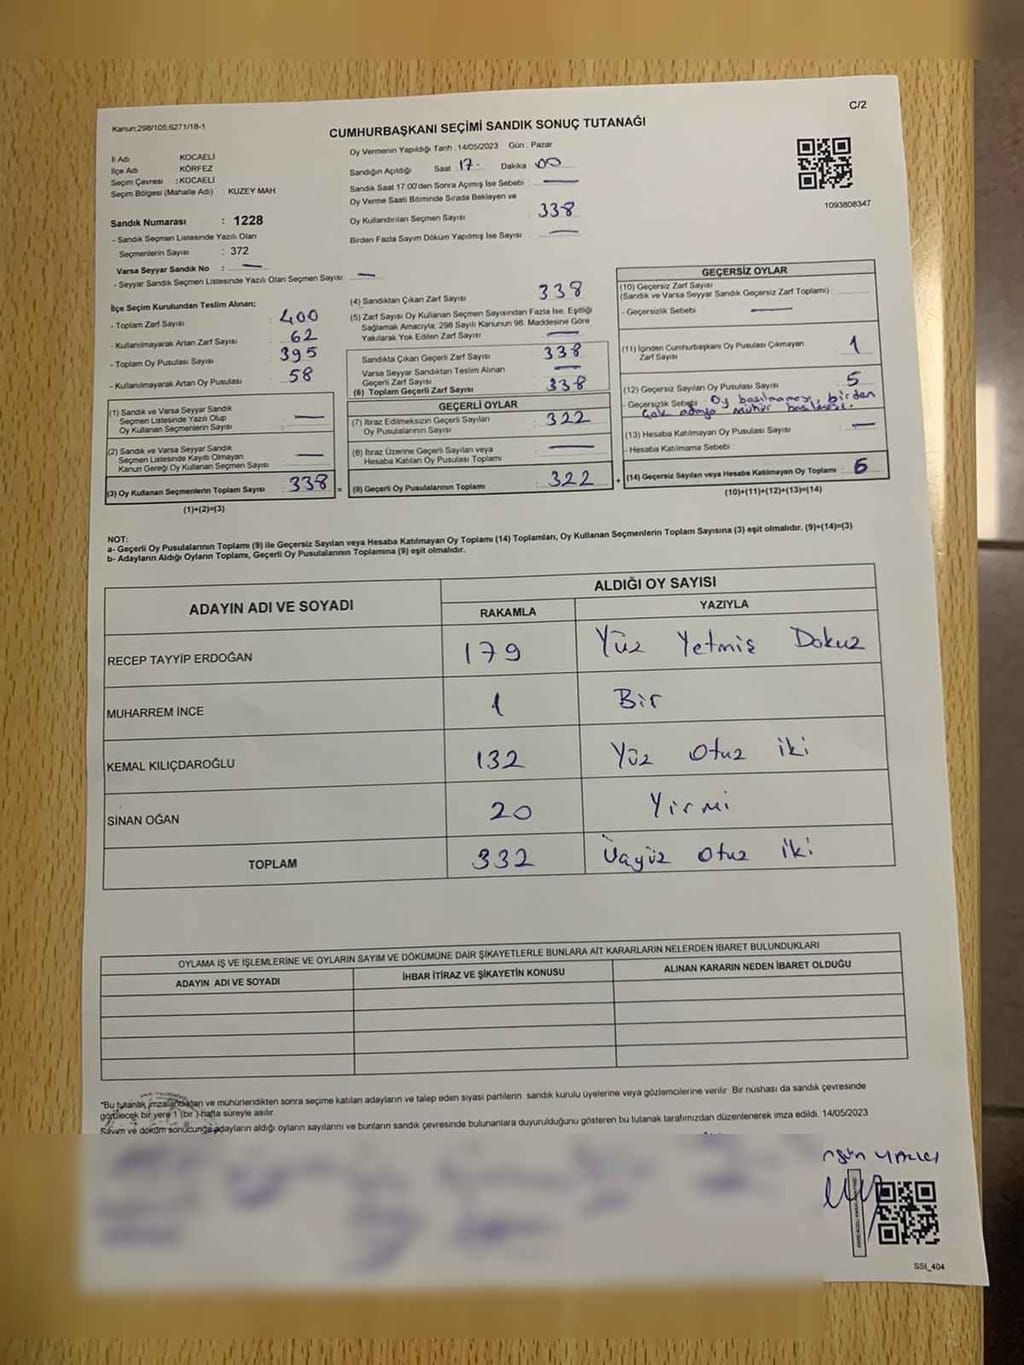 C/2
Kanun:298/105;6271/18-1
CUMHURBAŞKANI SEÇİMİ SANDIK SONUÇ TUTANAĞI
İl Adı : KOCAELİ
İlçe Adı : KÖRFEZ
Seçim Çevresi : KOCAELİ
Seçim Bölgesi (Mahalle Adı) : KUZEY MAH
Sandık Numarası : 1228
- Sandık Seçmen Listesinde Yazılı Olan
Seçmenlerin Sayısı : 372
Varsa Seyyar Sandık No : —
- Seyyar Sandık Seçmen Listesinde Yazılı Olan Seçmen Sayısı: —
Oy Vermenin Yapıldığı Tarih : 14/05/2023 Gün : Pazar
Sandığın Açıldığı Saat : 17- Dakika : 00
Sandık Saat 17:00'den Sonra Açılmış İse Sebebi : —
Oy Verme Saati Bitiminde Sırada Bekleyen ve
Oy Kullandırılan Seçmen Sayısı : 338
Birden Fazla Sayım Döküm Yapılmış İse Sayısı : —
1093808347
İlçe Seçim Kurulundan Teslim Alınan;
- Toplam Zarf Sayısı : 400
- Kullanılmayarak Artan Zarf Sayısı : 62
- Toplam Oy Pusulası Sayısı : 395
- Kullanılmayarak Artan Oy Pusulası : 58
(1) Sandık ve Varsa Seyyar Sandık
Seçmen Listesinde Yazılı Olup
Oy Kullanan Seçmenlerin Sayısı : —
(2) Sandık ve Varsa Seyyar Sandık
Seçmen Listesinde Kayıtlı Olmayan
Kanun Gereği Oy Kullanan Seçmen Sayısı : —
(3) Oy Kullanan Seçmenlerin Toplam Sayısı : 338 =
(1)+(2)=(3)
(4) Sandıktan Çıkan Zarf Sayısı : 338
(5) Zarf Sayısı Oy Kullanan Seçmen Sayısından Fazla İse, Eşitliği
Sağlamak Amacıyla; 298 Sayılı Kanunun 98. Maddesine Göre
Yakılarak Yok Edilen Zarf Sayısı : —
Sandıkta Çıkan Geçerli Zarf Sayısı : 338
Varsa Seyyar Sandıktan Teslim Alınan
Geçerli Zarf Sayısı : —
(6) Toplam Geçerli Zarf Sayısı : 338
GEÇERLİ OYLAR
(7) İtiraz Edilmeksizin Geçerli Sayılan
Oy Pusulalarının Sayısı : 322
(8) İtiraz Üzerine Geçerli Sayılan veya
Hesaba Katılan Oy Pusulası Toplamı : —
(9) Geçerli Oy Pusulalarının Toplamı : 322 +
GEÇERSİZ OYLAR
(10) Geçersiz Zarf Sayısı
(Sandık ve Varsa Seyyar Sandık Geçersiz Zarf Toplamı) :
- Geçersizlik Sebebi : —
(11) İçinden Cumhurbaşkanı Oy Pusulası Çıkmayan
Zarf Sayısı : 1
(12) Geçersiz Sayılan Oy Pusulası Sayısı : 5
- Geçersizlik Sebebi : Oy basılmaması, birden
çok adaya mühür basılması.
(13) Hesaba Katılmayan Oy Pusulası Sayısı : —
- Hesaba Katılmama Sebebi :
(14) Geçersiz Sayılan veya Hesaba Katılmayan Oy Toplamı : 6
(10)+(11)+(12)+(13)=(14)
NOT:
a- Geçerli Oy Pusulalarının Toplamı (9) ile Geçersiz Sayılan veya Hesaba Katılmayan Oy Toplamı (14) Toplamları, Oy Kullanan Seçmenlerin Toplam Sayısına (3) eşit olmalıdır. (9)+(14)=(3)
b- Adayların Aldığı Oyların Toplamı, Geçerli Oy Pusulalarının Toplamına (9) eşit olmalıdır.
ADAYIN ADI VE SOYADI
ALDIĞI OY SAYISI
RAKAMLA YAZIYLA
RECEP TAYYİP ERDOĞAN 179 Yüz Yetmiş Dokuz
MUHARREM İNCE 1 Bir
KEMAL KILIÇDAROĞLU 132 Yüz Otuz iki
SİNAN OĞAN 20 Yirmi
TOPLAM 332 Üçyüz otuz iki
OYLAMA İŞ VE İŞLEMLERİNE VE OYLARIN SAYIM VE DÖKÜMÜNE DAİR ŞİKAYETLERLE BUNLARA AİT KARARLARIN NELERDEN İBARET BULUNDUKLARI
ADAYIN ADI VE SOYADI İHBAR İTİRAZ VE ŞİKAYETİN KONUSU ALINAN KARARIN NEDEN İBARET OLDUĞU
"Bu tutanak imzalandıktan ve mühürlendikten sonra seçime katılan adayların ve talep eden siyasi partilerin sandık kurulu üyelerine veya gözlemcilerine verilir. Bir nüshası da sandık çevresinde
görülecek bir yere 1 (bir ) hafta süreyle asılır.
Sayım ve döküm sonucunda adayların aldığı oyların sayılarını ve bunların sandık çevresinde bulunanlara duyurulduğunu gösteren bu tutanak tarafımızdan düzenlenerek imza edildi. 14/05/2023
YAZICI
SSI_404